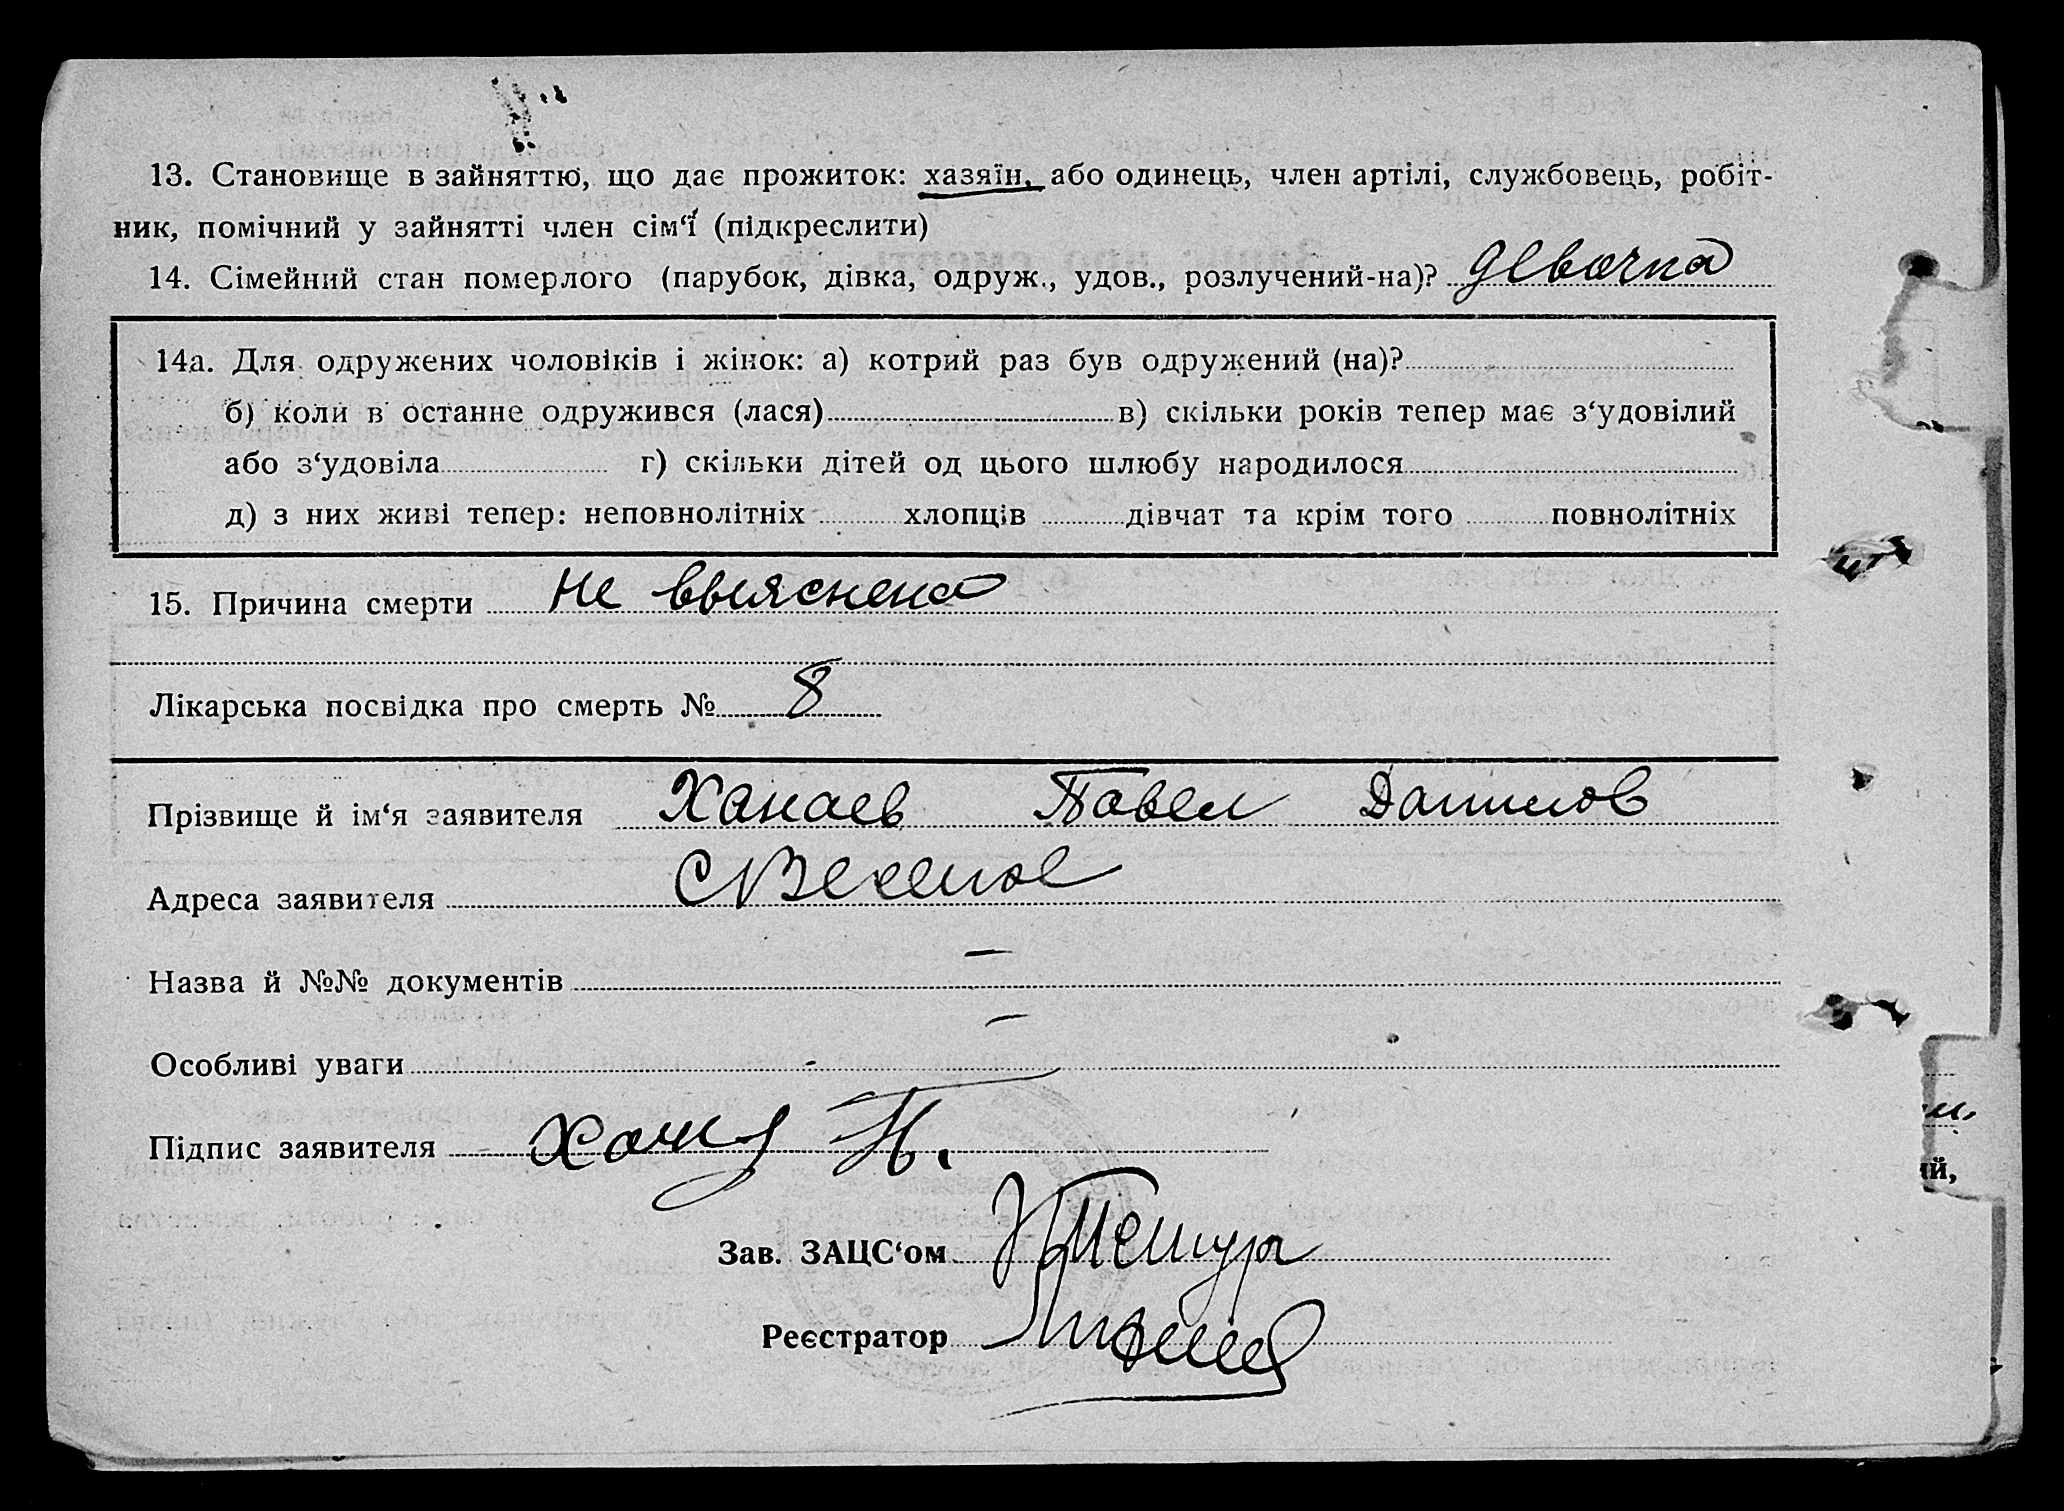 13. Становище в зайняттю, що дає прожиток: хазяїн, або одинець, член артілі, службовець, робіт-
ник, помічний у зайнятті член сім‘ї (підкреслити)
14. Сімейний стан померлого (парубок, дівка, одруж., удов., розлучений-на)? девочка
14а. Для одружених чоловіків і жінок: а) котрий раз був одружений (на)?
б) коли в останнє одружився (лася) в) скільки років тепер має з‘удовілий
або з‘удовіла г) скільки дітей од цього шлюбу народилося
д) з них живі тепер: неповнолітніх хлопців дівчат та крім того повнолітніх
15. Причина смерти не выяснена
Лікарська посвідка про смерть № 8
Прізвище й ім‘я заявителя Ханаев Павел Данилов
Адреса заявителя
Назва й №№ документів —
Особливі уваги —
Підпис заявителя
Зав. ЗАЦС‘ом
Реєстратор